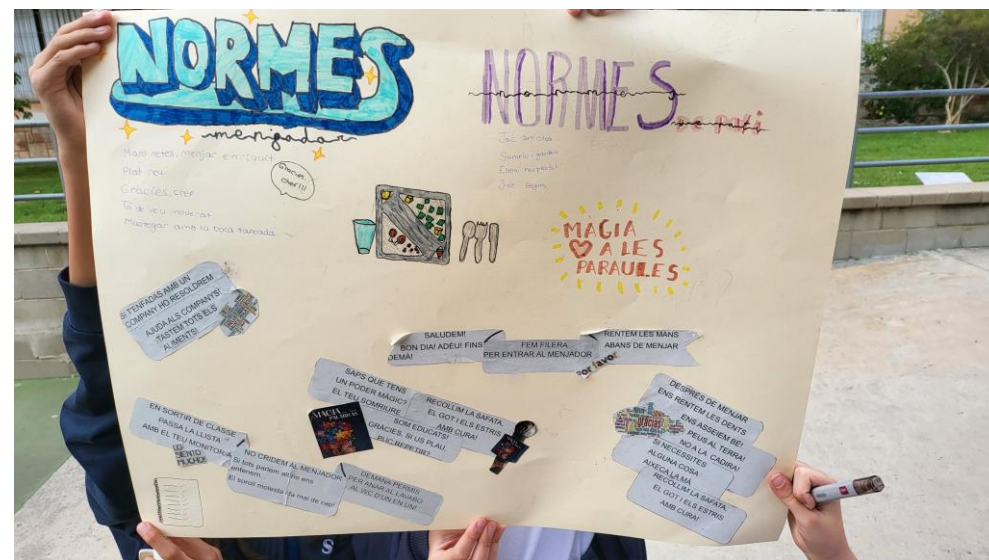 NORMES
menjador
Mans netes, menjar enriquit
Plat net
Gràcies, chef
To de veu moderat
Mastegar amb la boca tancada
Gràcies,
chef!!!
NORMES
de pati
Joc
Somriu
Joc segur
MÀGIA
A LES
PARAULES
SI T'ENFADAS AMB UN
COMPANY HO RESOLDREM
AJUDA ALS COMPANYS!
¡TASTEM TOTS ELS
ALIMENTS!
SALUDEM!
BON DIA! ADÉU! FINS
DEMÀ!
FEM FILERA
PER ENTRAR AL MENJADOR
RENTEM LES MANS
ABANS DE MENJAR
por favor
SAPS QUE TENS
UN PODER MÀGIC?
EL TEU SOMRIURE
RECOLLIM LA SAFATA,
EL GOT I ELS ESTRIS
AMB CURA!
SOM EDUCATS!
GRÀCIES, SI US PLAU,
PUC REPETIR?
MAGIA
PALABRAS
EN SORTIR DE CLASSE
PASSA LA LLISTA
AMB EL TEU MONITOR/A
LO
SIENTO
MUCHO!
NO CRIDEM AL MENJADOR
Si tots parlem alhora ens
entenem.
El soroll molesta i fa mal de cap!
DEMANA PERMÍS
PER ANAR AL LAVABO
AL WC D'UN EN UN!
DESPRÉS DE MENJAR
ENS RENTEM LES DENTS
ENS ASSEIEM BÉ!
PEUS AL TERRA!
NO A LA CADIRA!
gracias
SI NECESSITES
ALGUNA COSA
AIXECA LA MÀ
RECOLLIM LA SAFATA,
EL GOT I ELS ESTRIS
AMB CURA!
S